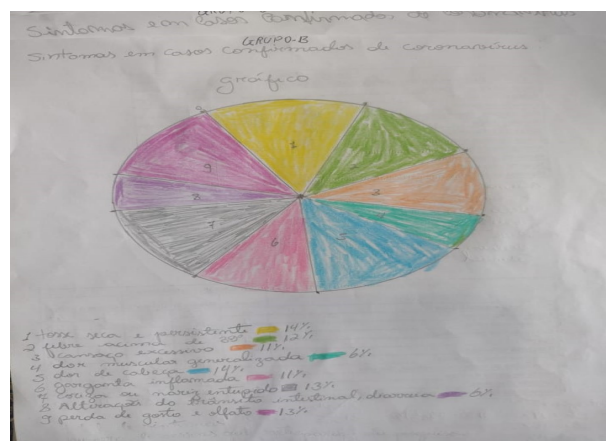 Sintomas em Casos Confirmados de coronavírus
GRUPO-B
Sintomas em casos confirmados de coronavírus
gráfico
1
9
3
8
7
6
5
1 tosse seca e persistente 14%
2 febre acima de 12%
3 cansaço excessivo 11%
4 dor musculos generalizada 6%
5 dor de cabeça 14%
6 garganta inflamada 11%
7 coriza ou nariz entupido 13%
8 Alteração do trânsito intestinal, diarreia 6%
9 perda de gosto e olfato 13%